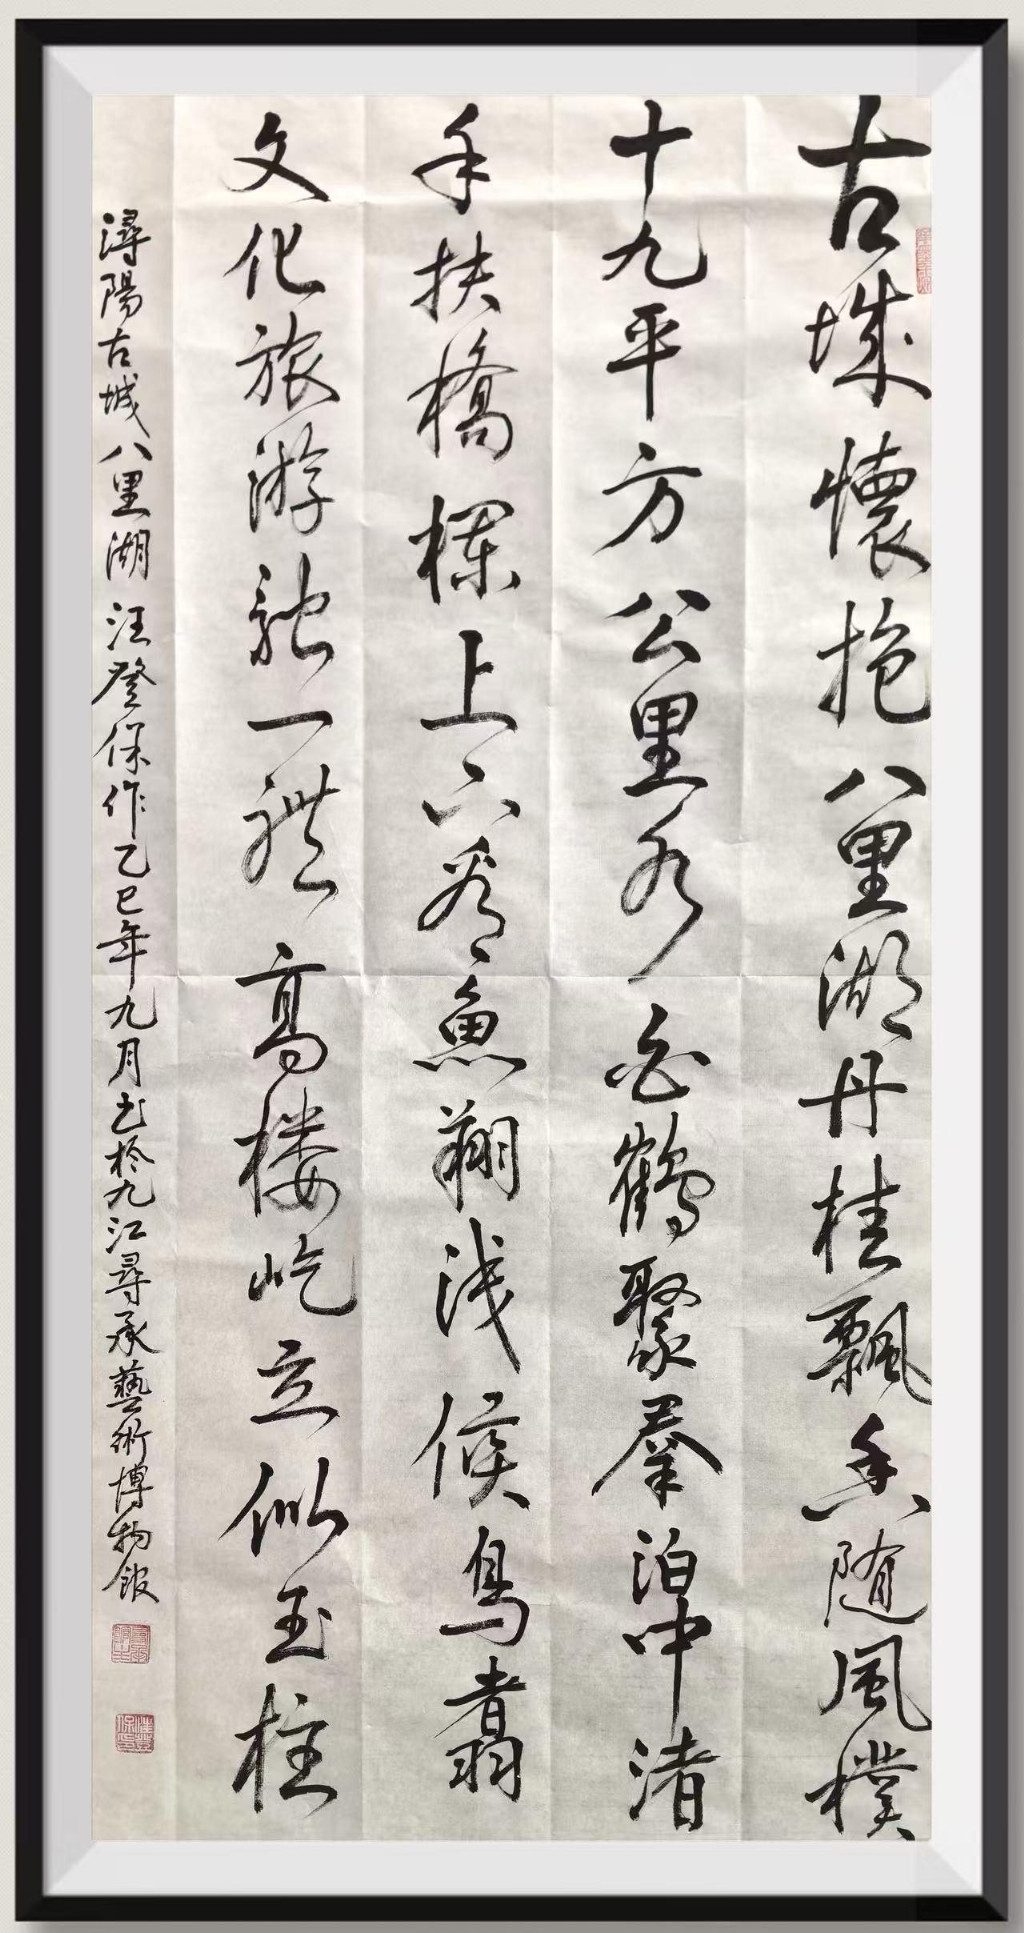 古城懷抱八里湖丹桂飄香随風樸
十九平方公里水白鶴聚羣泊中渚
手扶橋欄上下看魚翔浅候鳥翥
文化旅游融一體高楼屹立似玉柱
潯陽古城八里湖 汪登保作乙巳年九月书於九江尋承藝術博物館